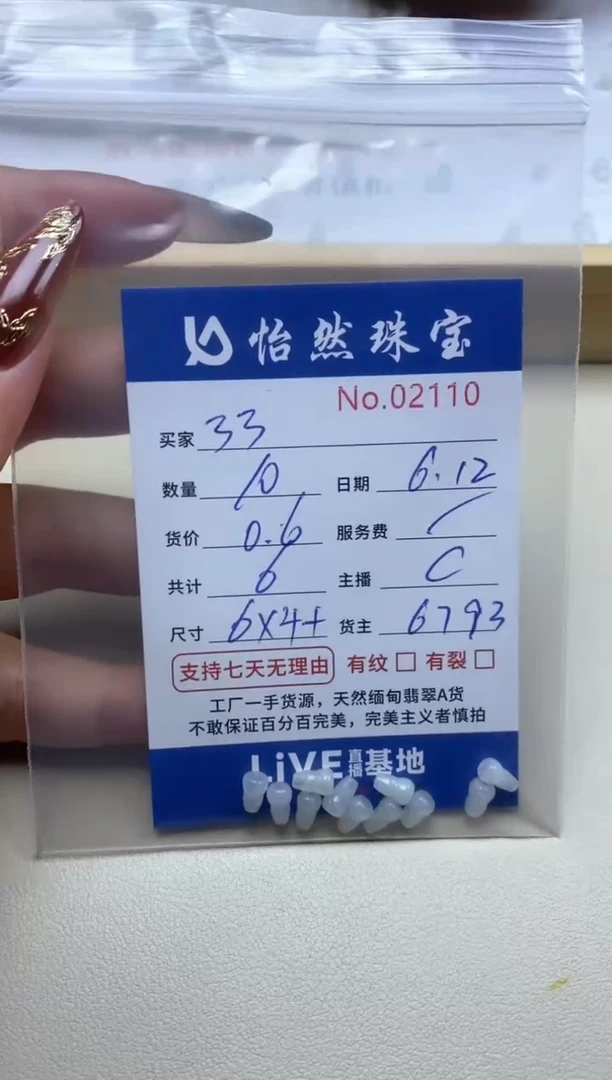 怡然珠宝
No.02110
买家 33
数量 10 日期 6.12
货价 0.6 服务费 /
共计 6 主播 C
尺寸 6X4+ 货主 6793
支持七天无理由 有纹 □ 有裂 □
工厂一手货源，天然缅甸翡翠A货
不敢保证百分百完美，完美主义者慎拍
LiVE直播基地